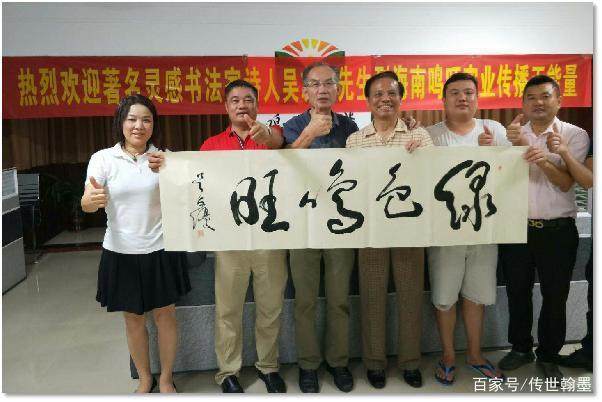 热烈欢迎著名灵感书法家诗人吴先生到海南鸣旺业传播正能量
绿色鸣旺
百家号/传世翰墨